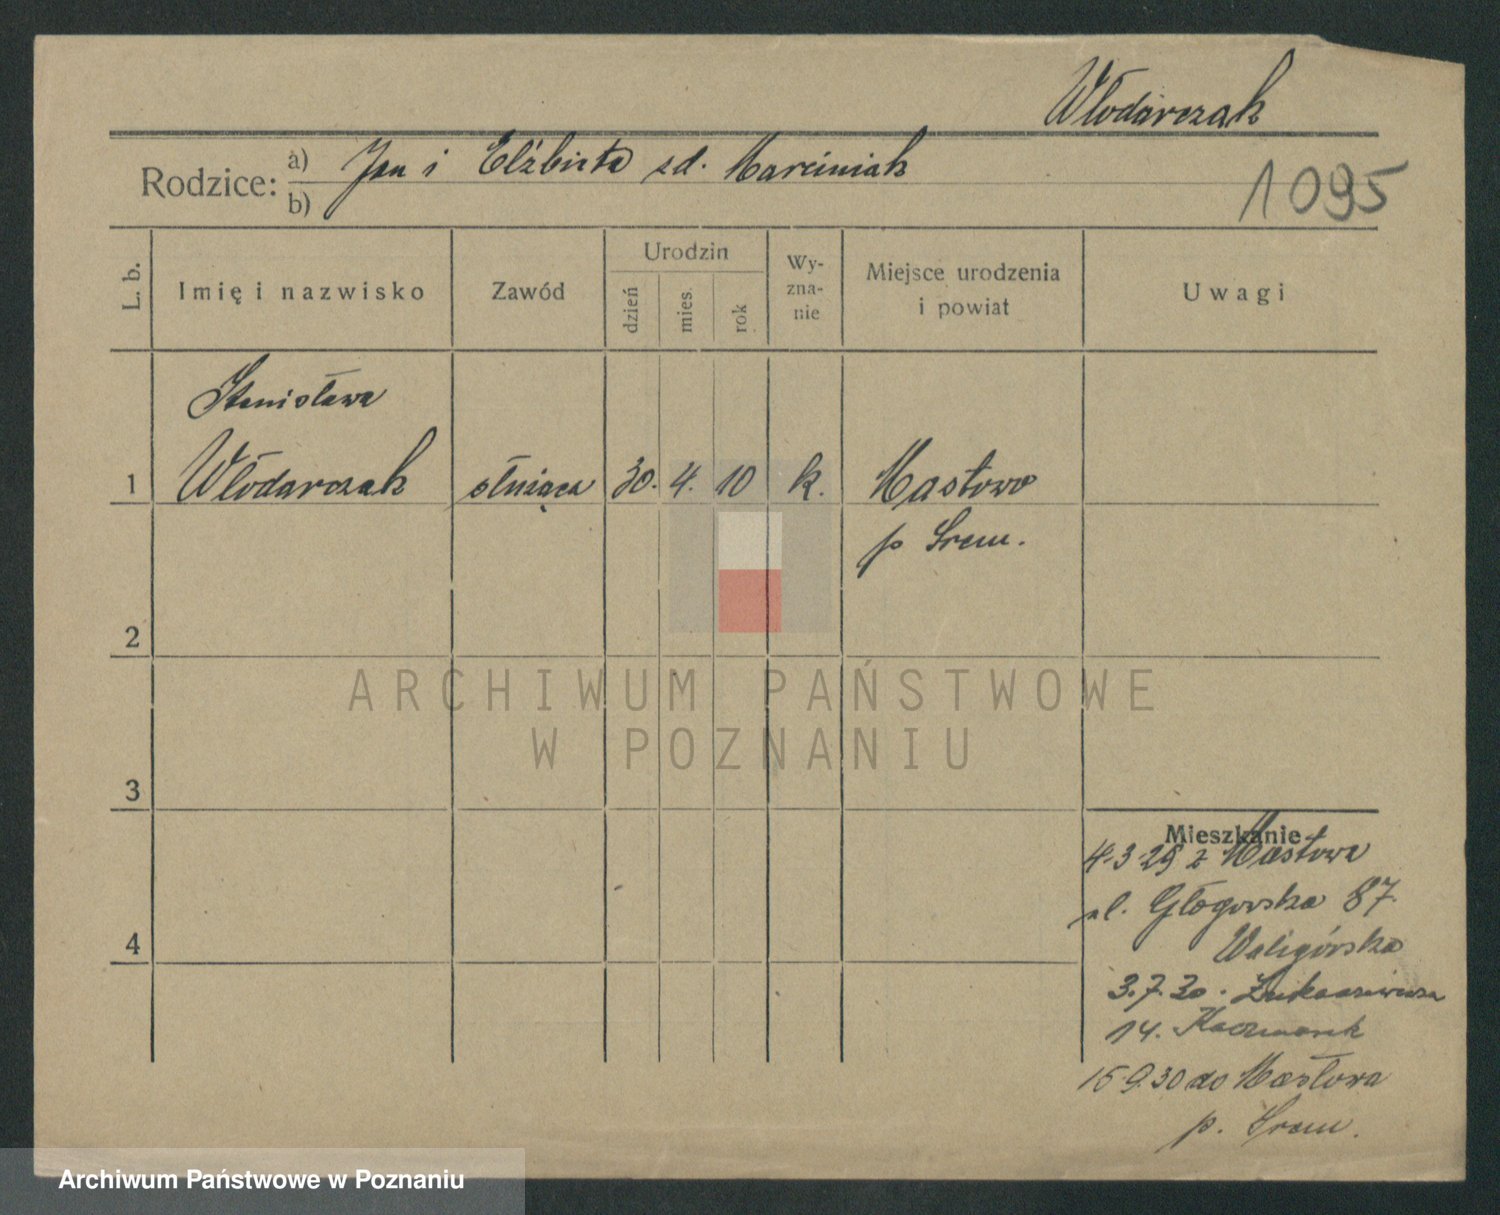 Włodarczak
Rodzice: a) Jan i Elżbieta zd. Marciniak
b)
1095
L. b.
Imię i nazwisko
Zawód
Urodzin
dzień
mies.
rok
Wy-
zna-
nie
Miejsce urodzenia
i powiat
Uwagi
Stanisława
1 Włodarczak służąca 30. 4. 10 k. Masłowo
p Śrem.
2
ARCHIWUM PAŃSTWOWE
W POZNANIU
3
Mieszkanie
4.3.29 z Masłowa
ul. Głogowska 87.
Waligórska
4
3.7.30.
14. Kaczmarek
15.9.30 do Masłowa
p. Śrem.
Archiwum Państwowe w Poznaniu